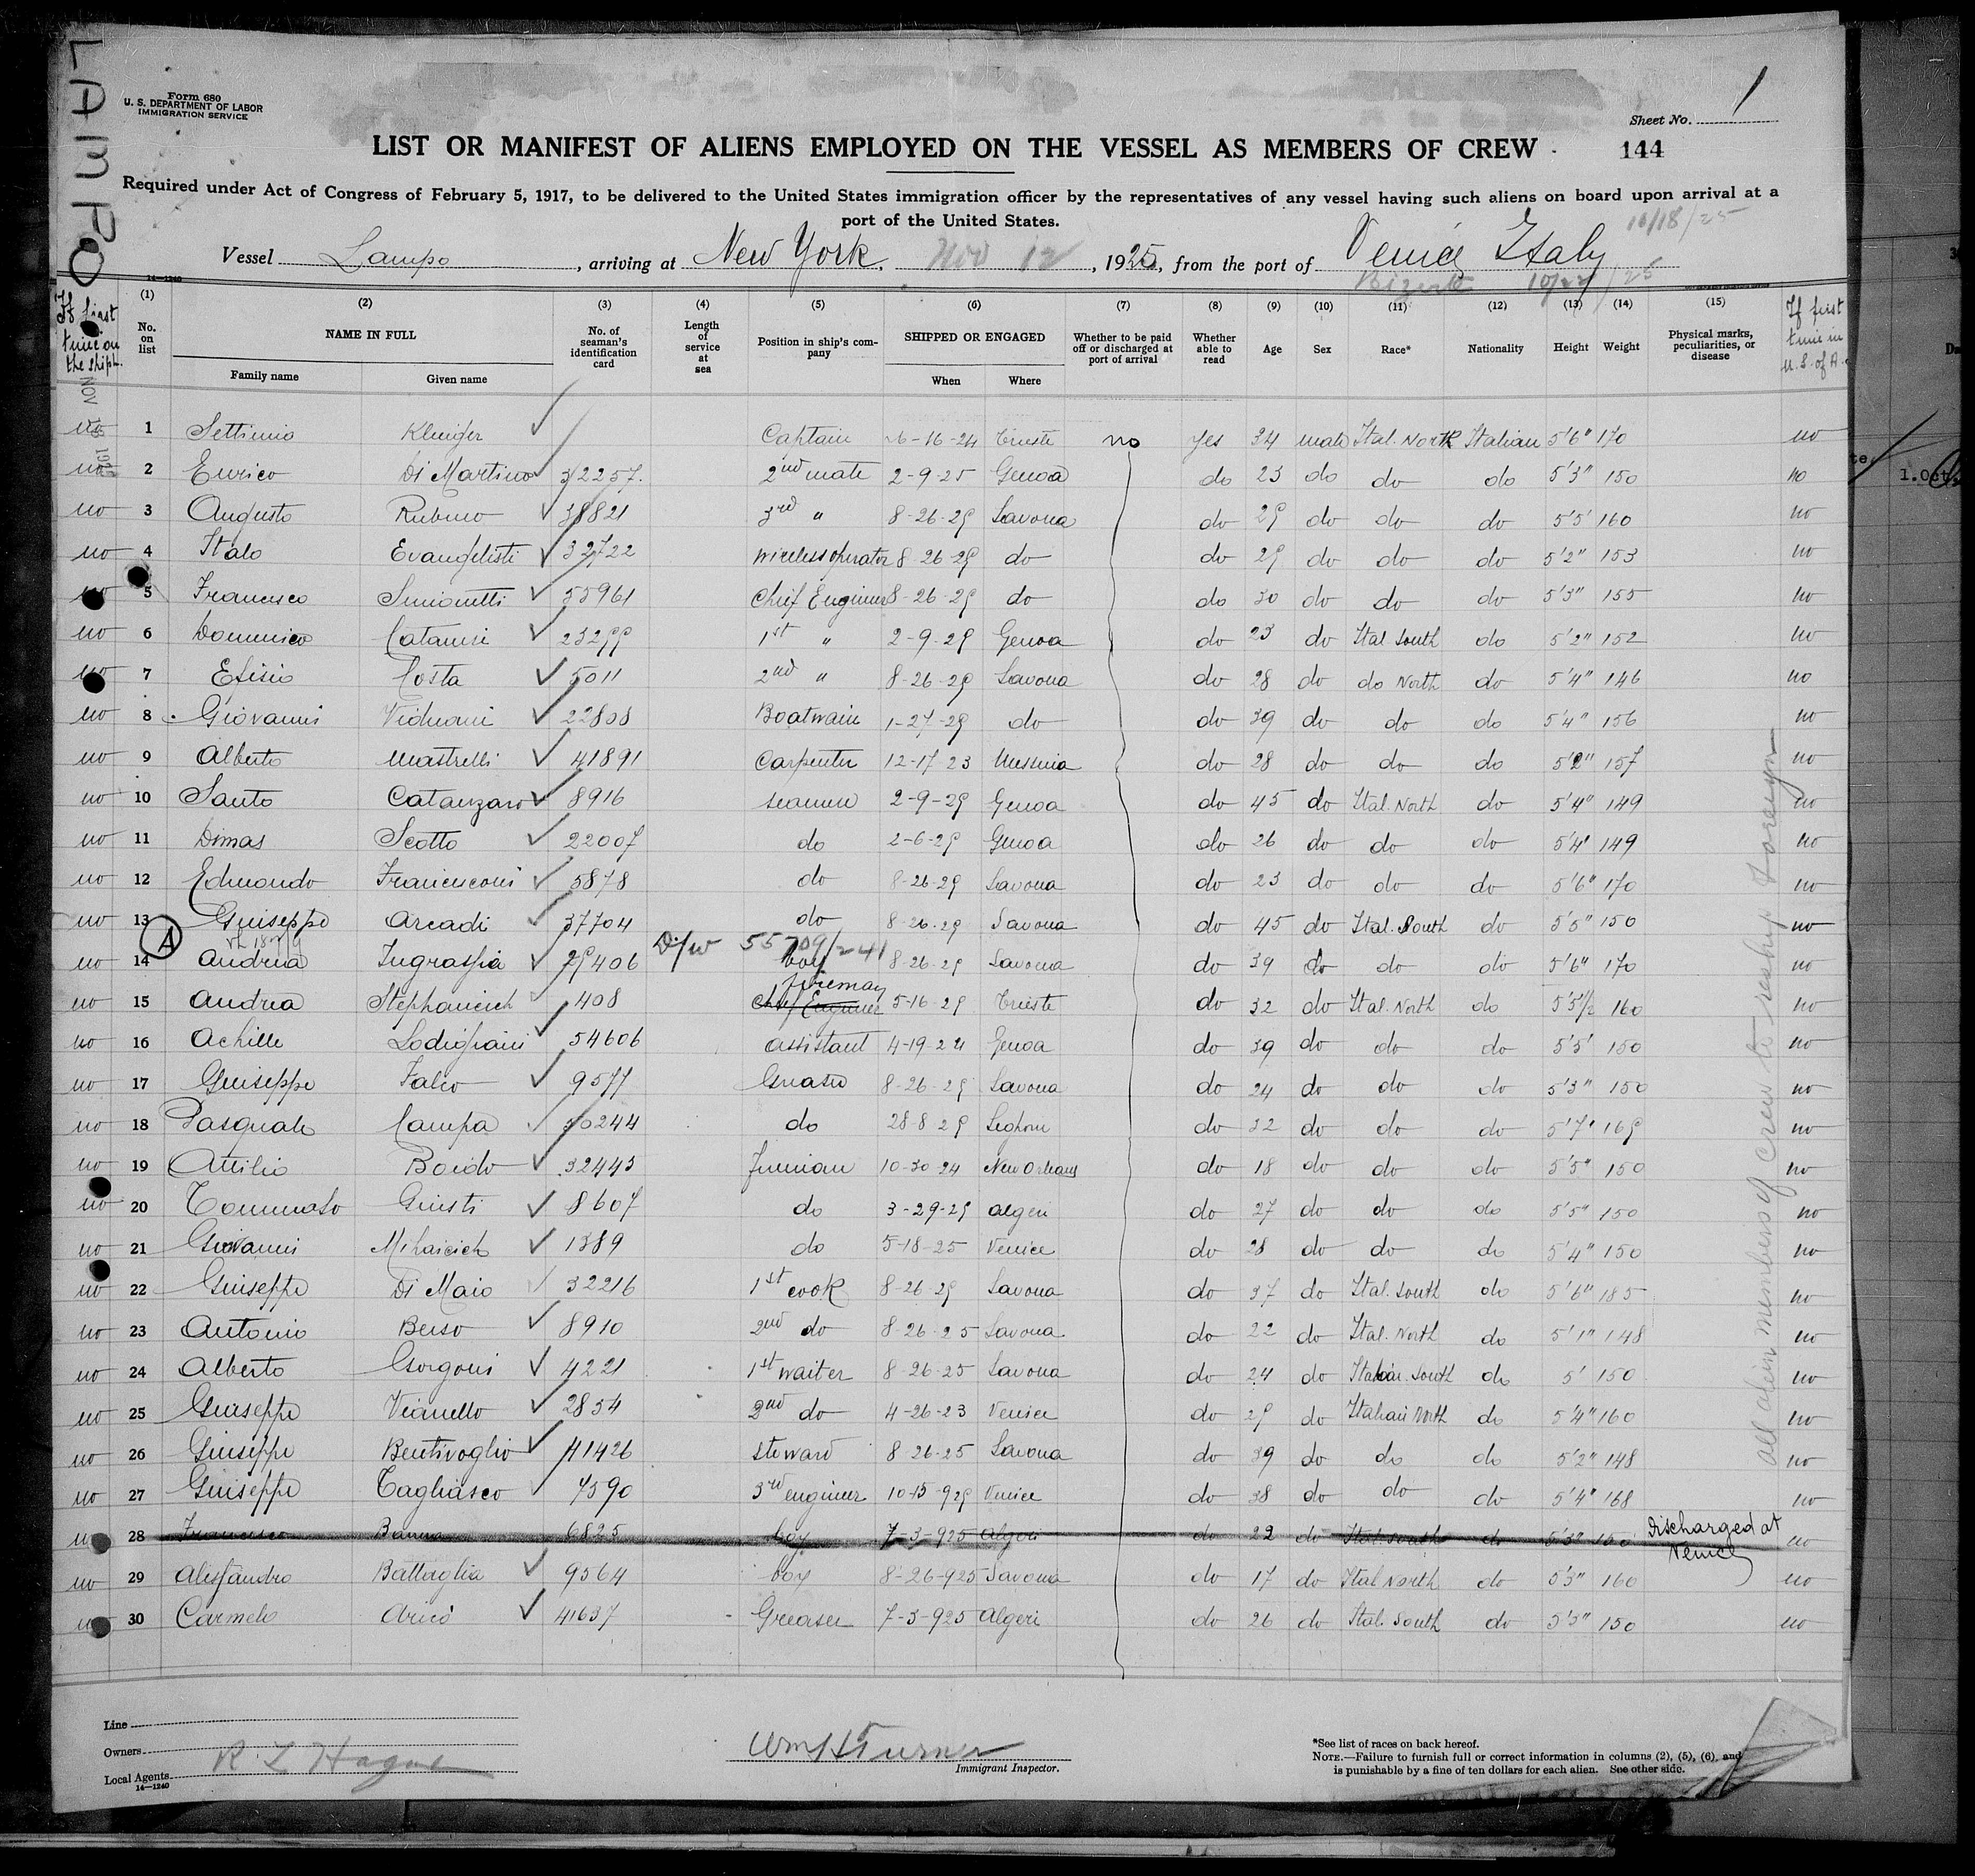 LAMPO
Form 680
U. S. DEPARTMENT OF LABOR
IMMIGRATION SERVICE
Sheet No. 1
LIST OR MANIFEST OF ALIENS EMPLOYED ON THE VESSEL AS MEMBERS OF CREW
144
Required under Act of Congress of February 5, 1917, to be delivered to the United States immigration officer by the representatives of any vessel having such aliens on board upon arrival at a
port of the United States.
10/18/25
Vessel Lampo, arriving at New York, Nov 12, 1925, from the port of Venice Italy
14—1240
Bizerte 10/27/25
If first time on the ship.
(1) (2) (3) (4) (5) (6) (7) (8) (9) (10) (11) (12) (13) (14) (15)
No. on list
NAME IN FULL
Family name Given name
No. of seaman's identification card
Length of service at sea
Position in ship's company
SHIPPED OR ENGAGED
When Where
Whether to be paid off or discharged at port of arrival
Whether able to read
Age
Sex
Race*
Nationality
Height
Weight
Physical marks, peculiarities, or disease
If first time in U. S. of A.
no 1 Settimio Captain 6-16-24 Trieste no yes 34 male Ital. North Italian 5'6" 170 no
no 2 Enrico Di Martino 32257 2nd mate 2-9-25 Genoa do 23 do do do 5'3" 150 no
no 3 Augusto Rubino 38821 3rd " 8-26-25 Savona do 25 do do do 5'5' 160 no
no 4 Italo Evangelisti 32722 wireless operator 8-26-25 do do 25 do do do 5'2" 153 no
no 5 Francesco Simonetti 55961 Chief Engineer 8-26-25 do do 30 do do do 5'3" 155 no
no 6 Domenico 23255 1st " 2-9-25 Genoa do 23 do Ital South do 5'2" 152 no
no 7 Efisio Costa 5011 2nd " 8-26-25 Savona do 28 do do North do 5'4" 146 no
no 8 Giovanni Vidmani 22808 Boatwain 1-27-25 do do 39 do do do 5'4" 156 no
no 9 Alberto Mastrelli 41891 Carpenter 12-17-23 Messina do 28 do do do 5'2" 157 no
no 10 Santo Catanzaro 8916 seamen 2-9-25 Genoa do 45 do Ital. North do 5'4" 149 no
no 11 Dimas Scotto 22007 do 2-6-25 Genoa do 26 do do do 5'4" 149 no
no 12 Edmondo Francesconi 5878 do 8-26-25 Savona do 23 do do do 5'6" 170 no
no 13 Guiseppe Arcadi 37704 do 8-26-25 Savona do 45 do Ital. South do 5'5" 150 no
A
D/W 55709/241
no 14 Andrea Ingrassia 25406 boy 8-26-25 Savona do 39 do do do 5'6" 170 no
fireman
no 15 Andrea Stephancich 408 Chief Engineer 5-16-25 Trieste do 32 do Ital. North do 5'5½ 160 no
no 16 Achille Lodigiani 54606 assistant 4-19-24 Genoa do 39 do do do 5'5' 150 no
no 17 Guiseppe Falco 9577 8-26-25 Savona do 24 do do do 5'3" 150 no
no 18 Pasquale Campa 30244 do 28 8 25 Leghorn do 32 do do do 5'7" 165 no
no 19 Attilio Boido 32443 10-30-24 New Orleans do 18 do do do 5'5" 150 no
no 20 Tommaso Giusti 8607 do 3-29-25 Algeri do 27 do do do 5'5" 150 no
no 21 Giovanni Mihaicich 1389 do 5-18-25 Venice do 28 do do do 5'4" 150 no
no 22 Guiseppe Di Maio 32216 1st cook 8-26 25 Savona do 37 do Ital. South do 5'6" 185 no
no 23 Antonio Berso 8910 2nd do 8-26-25 Savona do 22 do Ital. North do 5'1" 148 no
no 24 Alberto Gorgoni 4221 1st waiter 8-26-25 Savona do 24 do Italian. South do 5' 150 no
no 25 Guiseppe Vianello 2854 2nd do 4-26-23 Venice do 25 do Italian North do 5'4" 160 no
no 26 Giuseppe Bentivoglio 41426 steward 8-26-25 Savona do 39 do do do 5'2" 148 no
no 27 Guiseppe Tagliasco 4590 3rd engineer 10-15-925 Venice do 38 do do do 5'4" 168 no
no 28 Francesco 6825 boy 7-3-925 Algeri do 22 do Ital. South do 5'3" 150 Discharged at Venice no
no 29 Alessandro Battaglia 9564 boy 8-26-925 Savona do 17 do Ital North do 5'3" 160 no
no 30 Carmelo Aricò 41637 Greaser 7-3-925 Algeri do 26 do Ital. South do 5'5" 150 no
all alien members of crew to reship foreign
Line
Owners
Local Agents
R L Hague
14—1240
Wm H Turner
Immigrant Inspector.
*See list of races on back hereof.
NOTE.—Failure to furnish full or correct information in columns (2), (5), (6), and
is punishable by a fine of ten dollars for each alien. See other side.
1. Oct.